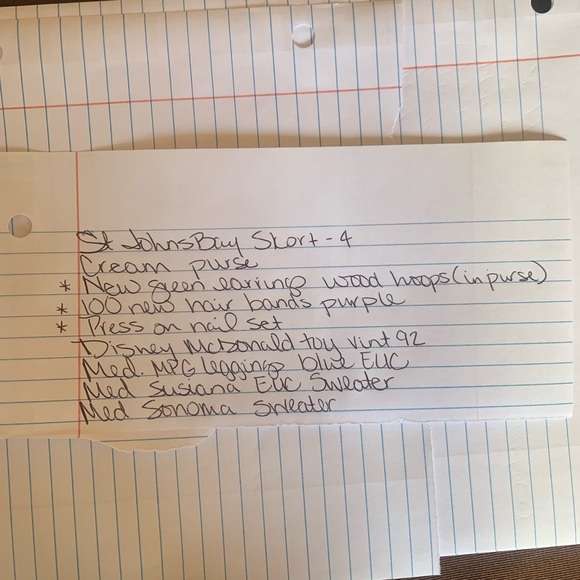 St JohnsBay Skort - 4
Cream purse
* New green earrings wood hoops (in purse)
* 100 new hair bands purple
* Press on nail set
Disney McDonald toy vint 92
Med. MPG leggings blue EUC
Med Susiana EUC Sweater
Med Sonoma Sweater